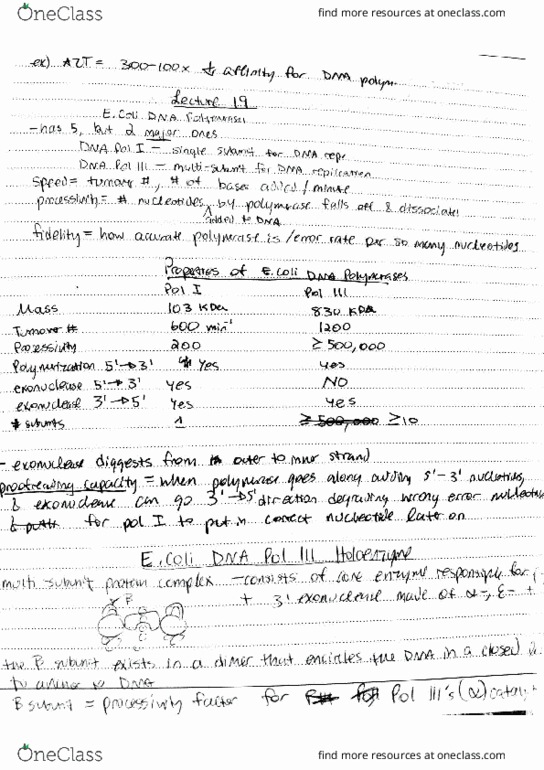 OneClass
find more resources at oneclass.com
ex) AZT = 300-100x ↓ affinity for DNA polym.
Lecture 19
E.Coli DNA Polymerases
- has 5, but 2 major ones
DNA Pol I - single subunit for DNA repr
DNA Pol III - multi-subunit for DNA replication
Speed = turnover #, # of bases added / minute
processivity = # nucleotides added to DNA by polymerase falls off & dissociates
fidelity = how accurate polymerase is / error rate per so many nucleotides
Properties of E.coli DNA Polymerases
Pol I Pol III
Mass 103 KDa 830 KDa
Turnover # 600 min⁻¹ 1200
Processivity 200 ≥ 500,000
Polymerization 5'→3' Yes yes
exonuclease 5'→3' yes NO
exonuclease 3'→5' yes yes
# subunits 1 ≥ 500,000 ≥10
- exonuclease diggests from outer to inner strand
proofreading capacity = when polymerase goes along adding 5'-3' nucleotides,
& exonuclease can go 3'→5' direction degrading wrong error nucleotides
for pol I to put in correct nucleotide later on
E.Coli DNA Pol III Holoenzyme
multi subunit protein complex - consists of core enzyme responsible for
+ 3' exonuclease made of α=, ε= +
β
the β subunit exists in a dimer that encircles the DNA in a closed
to DNA
β subunit = processivity factor for Pol III's (α) cataly
OneClass
find more resources at oneclass.com